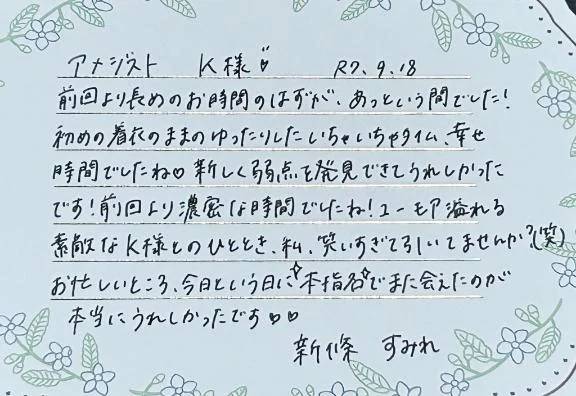 アメジスト K様♡ R7.9.18
前回より長めのお時間のはずが、あっという間でした!
初めの着衣のままのゆったりしたいちゃいちゃタイム、幸せ
時間でしたね♡ 新しく弱点を発見できてうれしかった
です!前回より濃密な時間でしたね!ユーモア溢れる
素敵なK様とのひととき、私、笑いすぎて引いてませんか?(笑)
お忙しいところ、今日という日に☆本指名☆でまた会えたのが
本当にうれしかったです♡♡
新條 すみれ